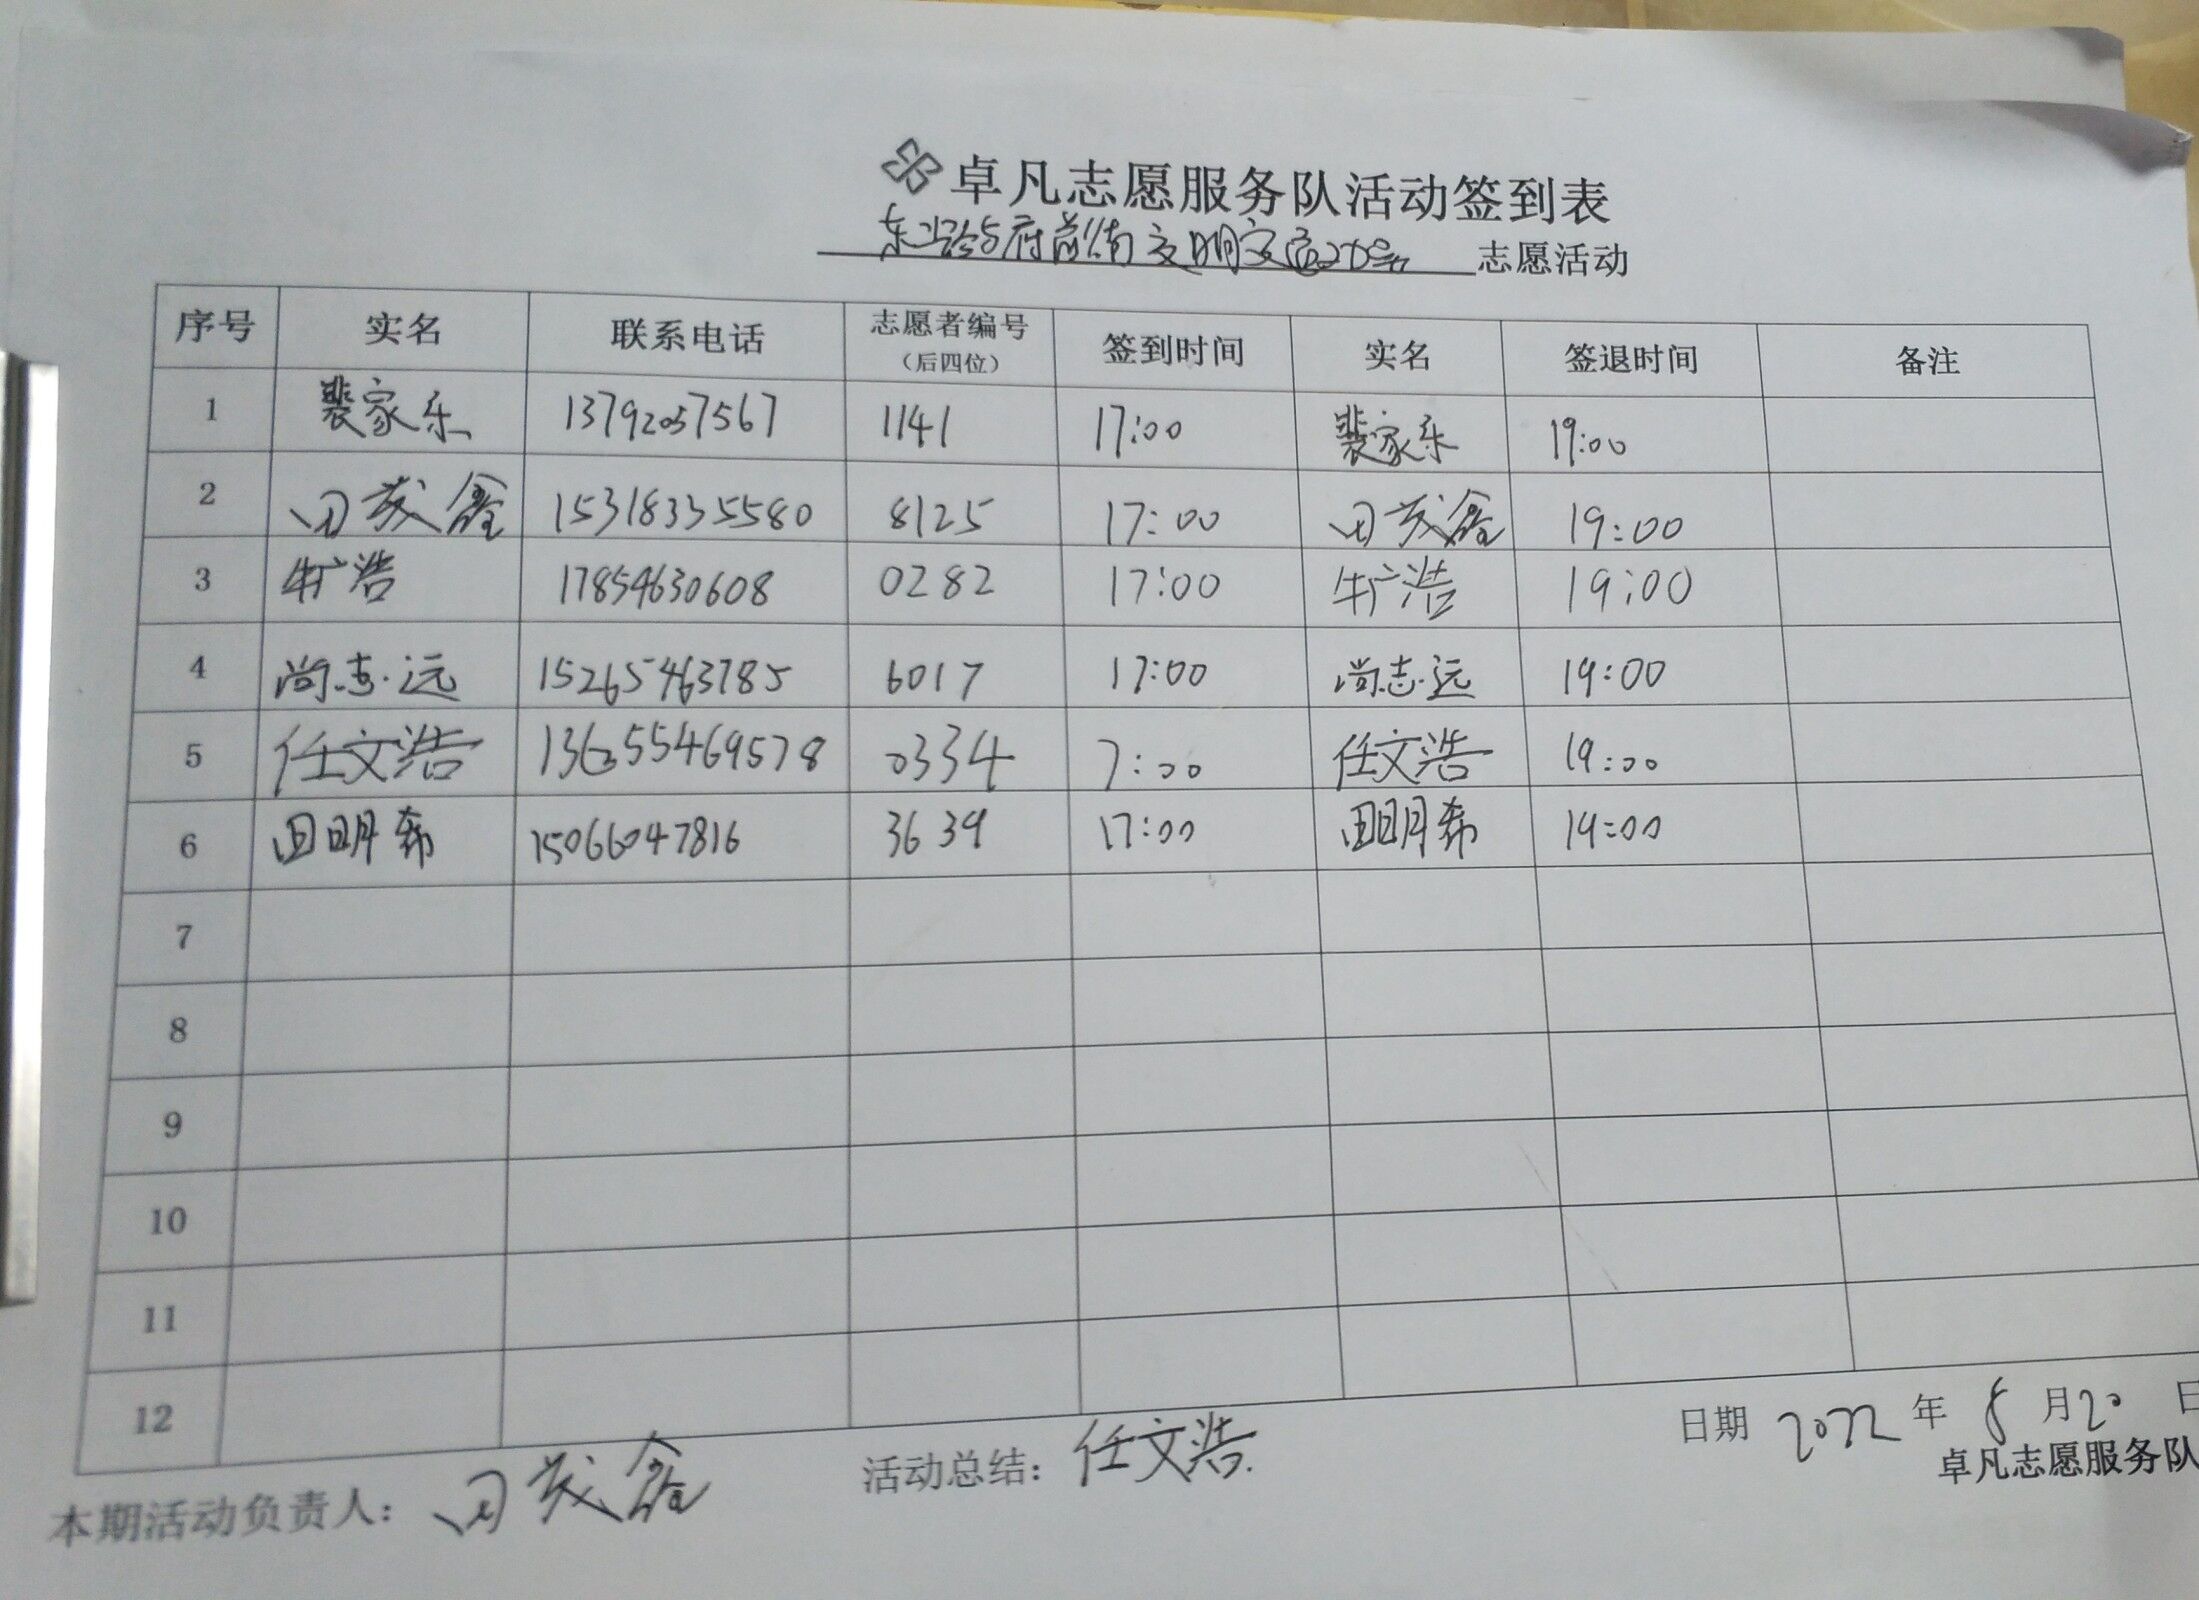 卓凡志愿服务队活动签到表
东 路与府前街文明交通 志愿活动
序号 实名 联系电话 志愿者编号（后四位） 签到时间 实名 签退时间 备注
1 裴家乐 13792057567 1141 17:00 裴家乐 19:00
2 田茂鑫 15318335580 8125 17:00 田茂鑫 19:00
3 牛广浩 17854630608 0282 17:00 牛广浩 19:00
4 尚志远 15265463785 6017 17:00 尚志远 19:00
5 任文浩 0334 7:00 任文浩 19:00
6 田明希 15066047816 3639 17:00 田明希 19:00
7
8
9
10
11
12
日期 2022 年 8 月 20 日
本期活动负责人： 田茂鑫 活动总结： 任文浩
卓凡志愿服务队